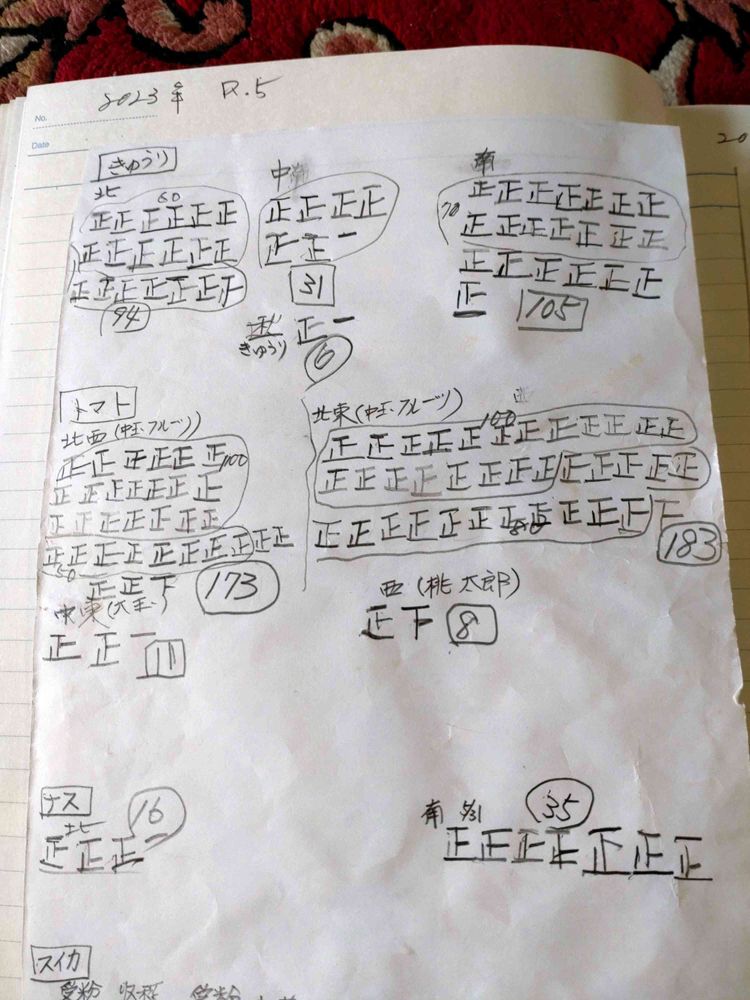 No.
Date
2023年 R.5
20
きゅうり
北
60
正正正正正正
正正正正正正
正正正正正正下
94
中
正正正正
正正一
31
正一
きゅうり
6
南
70
正正正正正正正
正正正正正正正
正正正正正正
正
105
トマト
北西(中玉・フルーツ)
正正正正正正
100
正正正正正正正
正正正正正正正
正正正正正正正正正正
50
正正下
173
中東(大玉)
正正一
11
北東(中玉・フルーツ)
西
100
正正正正正正正正正正正正
正正正正正正正正正正正正正
正正正正正正正正正正正下
80
183
西(桃太郎)
正下
8
ナス
北
16
正正正一
南 5/31
35
正正正正正正正
スイカ
受粉 収穫 受粉